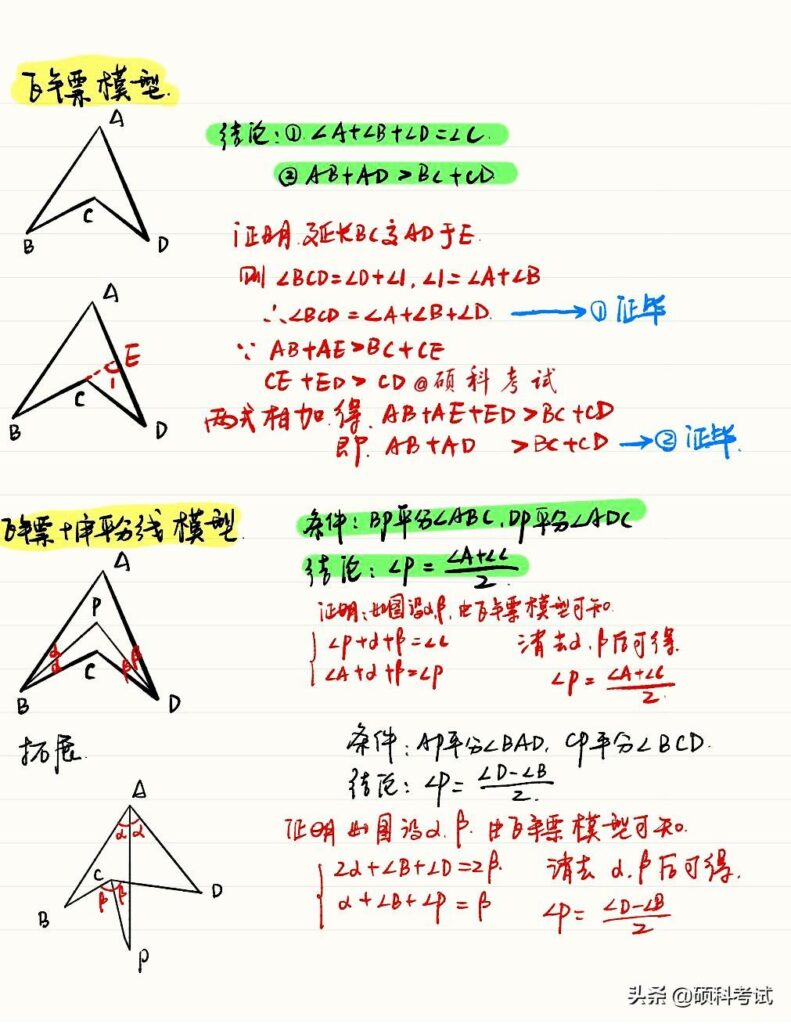 飞镖模型
A
B
C
D
结论:① ∠A+∠B+∠D=∠C.
② AB+AD>BC+CD
证明 延长BC交AD于E.
则 ∠BCD=∠D+∠1, ∠1=∠A+∠B
∴∠BCD=∠A+∠B+∠D. → ① 证毕
A
E
C
1
B
D
∵ AB+AE>BC+CE
CE+ED>CD @硕科考试
两式相加.得. AB+AE+ED>BC+CD
即. AB+AD >BC+CD → ② 证毕.
飞镖+角平分线模型
条件:BP平分∠ABC,DP平分∠ADC
结论:∠P=(∠A+∠C)/2.
A
P
C
α
α
β
β
B
D
证明:如图设α.β,由飞镖模型可知.
∠P+α+β=∠C
∠A+α+β=∠P
消去α.β后可得.
∠P=(∠A+∠C)/2.
拓展.
条件:AP平分∠BAD, CP平分∠BCD.
结论:∠P=(∠D-∠B)/2.
A
α α
C
β β
B
D
P
证明 如图设α.β.由飞镖模型可知.
2α+∠B+∠D=2β.
α+∠B+∠P=β
消去 α.β后可得.
∠P=(∠D-∠B)/2
头条 @硕科考试